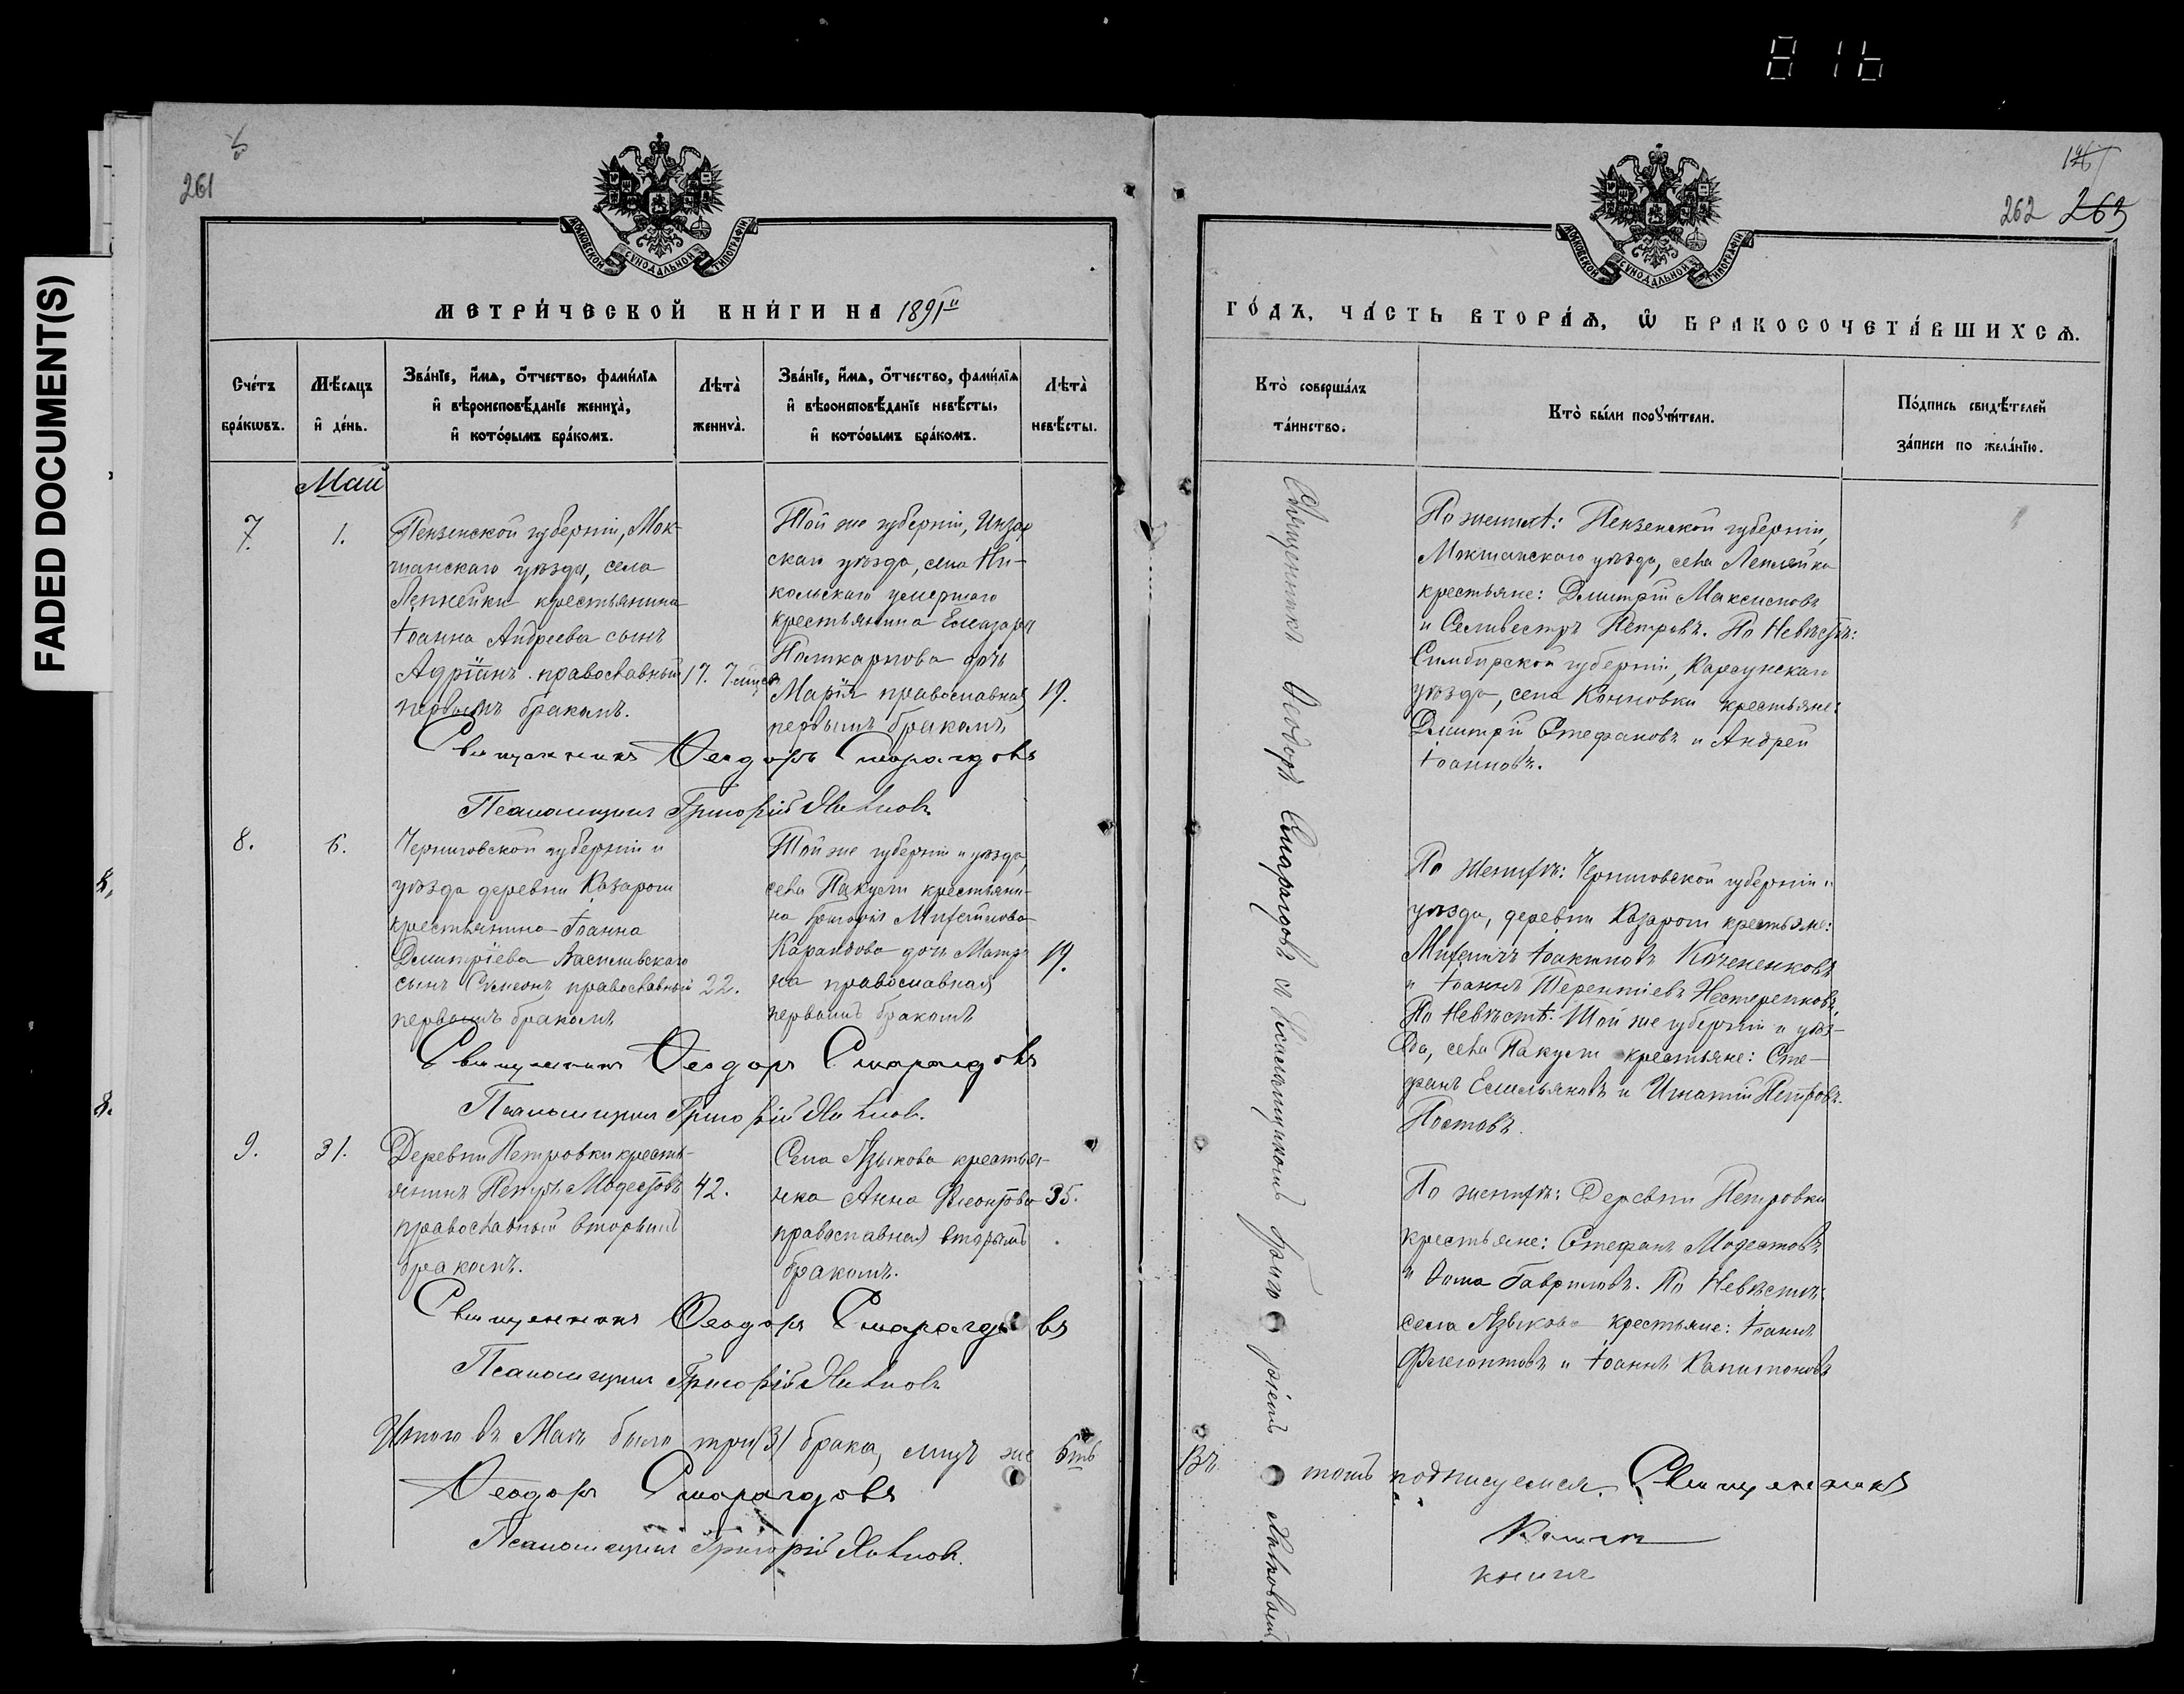 816
FADED DOCUMENT(S)
261
МОСКОВСКОЙ СѴНОДАЛЬНОЙ ТИПОГРАФІИ
МЕТРИ́ЧЕСКОЙ КНИ́ГИ НА 1891й
Сче́тъ бра́кωвъ.
Мѣ́сяцъ и҆ де́нь.
Зва́нїе, и҆́мѧ, о҆́тчество, фами́лїѧ и҆ вѣроисповѣ́данїе жениха̀, и҆ кото́рымъ бра́комъ.
Лѣта̀ жениха̀.
Зва́нїе, и҆́мѧ, о҆́тчество, фами́лїѧ и҆ вѣроисповѣ́данїе невѣ́сты, и҆ кото́рымъ бра́комъ.
Лѣта̀ невѣ́сты.
Май
7.
1.
Пензенской губерніи, Мок-
шанскаго уѣзда, села
крестьянина
Іоанна Андреева сынъ
Адріанъ православный
первымъ бракомъ.
17. 7 мцев
Той же губерніи, Инзар
скаго уѣзда, села Ни-
кольскаго умершаго
крестьянина Елеазара
Поликарпова дочь
Марія православная
первымъ бракомъ
19.
Священникъ Ѳеодоръ Смарагдовъ
Псаломщикъ Григорій
8.
6.
Черниговской губерніи и
уѣзда деревни Казароги
крестьянина Іоанна
Димитріева Василевскаго
сынъ Сѵмеонъ православный
первымъ бракомъ
22.
Той же губерніи и уѣзда,
села Пакули крестьяни-
на Григорія
дочь Матро
на православная
первымъ бракомъ
19.
Священникъ Ѳеодоръ Смарагдовъ
Псаломщикъ Григорій
9.
31.
Деревни Петровки кресть-
янинъ Петръ Модестовъ
православный вторымъ
бракомъ.
42.
Села Языкова крестья-
нка Анна Флегонтова
православная вторымъ
бракомъ.
35.
Священникъ Ѳеодоръ Смарагдовъ
Псаломщикъ Григорій
Итого въ Маѣ было три (3) брака, лицъ же 6ть
Ѳеодоръ Смарагдовъ
Псаломщикъ Григорій
262 263
МОСКОВСКОЙ СѴНОДАЛЬНОЙ ТИПОГРАФІИ
ГО́ДЪ, ЧА́СТЬ ВТОРА́Ѧ, Ѽ БРАКОСОЧЕТА́ВШИХСѦ.
Кто̀ соверша́лъ та́инство.
Кто̀ бы́ли порꙋчи́тели.
По́дпись свидѣ́телей за́писи по жела́нїю.
Священникъ Ѳеодоръ Смарагдовъ съ псаломщикомъ
По женихѣ: Пензенской губерніи,
Мокшанскаго уѣзда, села
крестьяне: Димитрій Максимовъ
и Селивестръ Петровъ. По Невѣстѣ:
Симбирской губерніи, Карсунскаго
уѣзда, села крестьяне:
Димитрій Стефановъ и Андрей
Іоанновъ.
По женихѣ: Черниговской губерніи и
уѣзда, деревни Казароги крестьяне:
и Іоаннъ Терентіевъ Нестеренковъ,
По Невѣстѣ: Той же губерніи и уѣз-
да, села Пакули крестьяне: Сте-
фанъ Емельяновъ и Игнатій Петровъ.
По женихѣ: Деревни Петровки
крестьяне: Стефанъ Модестовъ
и Ѳома Гавриловъ. По Невѣстѣ:
села Языкова крестьяне: Іоаннъ
Флегонтовъ и Іоаннъ Капитоновъ
Въ томъ подписуемся. Священникъ